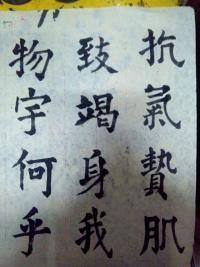 抗氣贊肌
致竭身我
物宇何乎